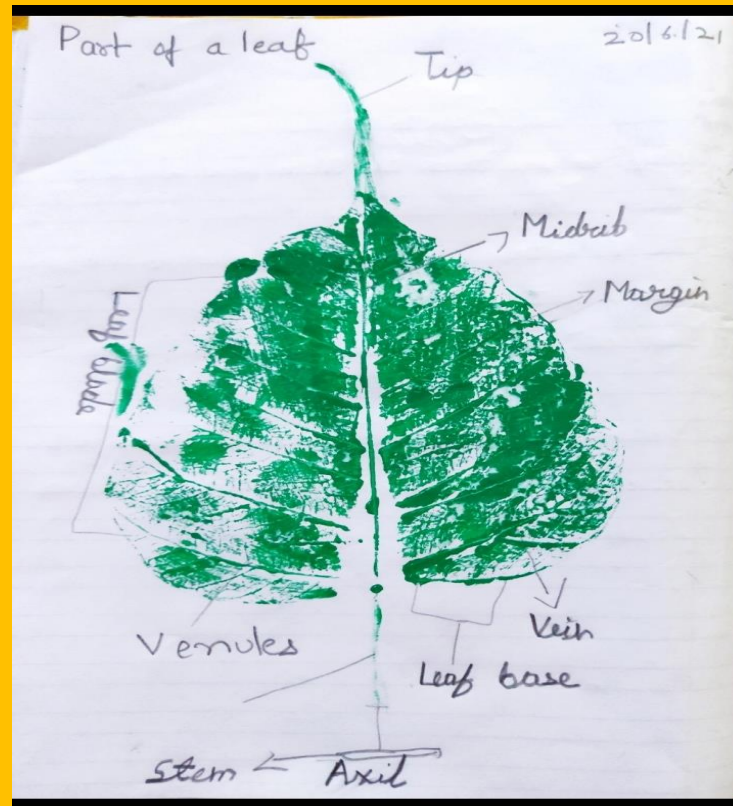 Part of a leaf
20/6/21
Tip
Midrib
Margin
Leaf blade
Venules
Vein
Leaf base
Stem
Axil